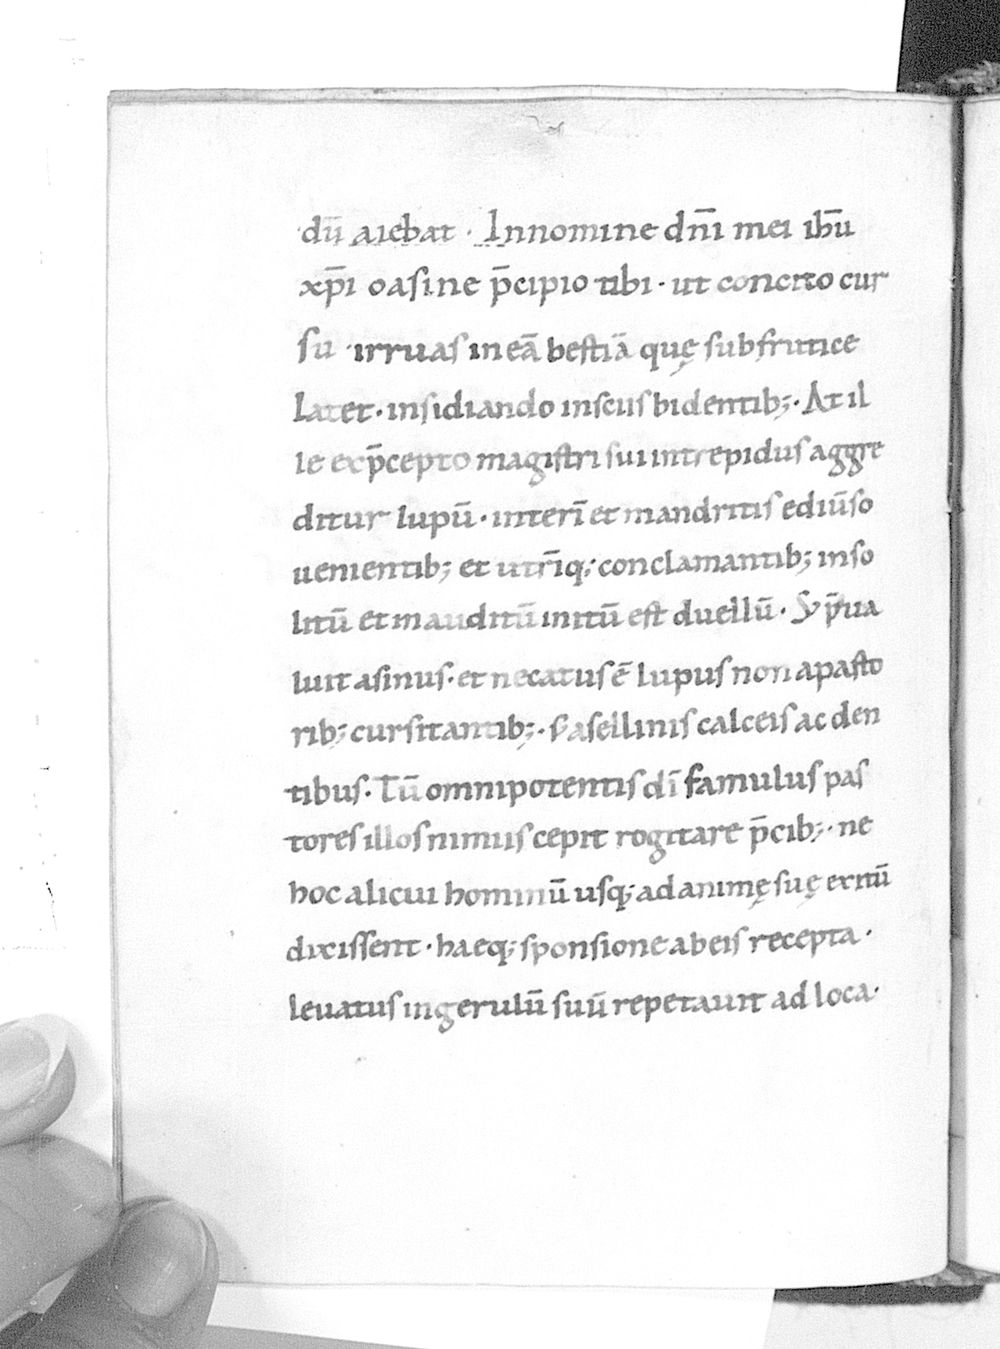 dū aiebat · Innomine dn̄i mei ihū
xp̄i oasine p̄cipio tibi · ut concito cur
su · irruas in eā bestiā quę subfrutice
Latet · insidiando insciis bidentib; · At il
le exp̄cepto magistri sui intrepidus aggre
ditur lupū · interī et mandritis ediūso
uenientib; et utrīq; conclamantib; inso
litū et inauditū initū est duellū · S; p̄ua
luit asinus · et necatus ē lupus non apasto
rib; cursitantib; · S; asellinis calceis ac den
tibus · Tū omnipotentis dī famulus pas
tores illos nimiis cepit rogitare p̄cib; · ne
hoc alicui hominū usq; ad animę suę exitū
dixissent · haeq; sponsione abeis recepta ·
leuatus ingerulū suū repetauit ad loca ·